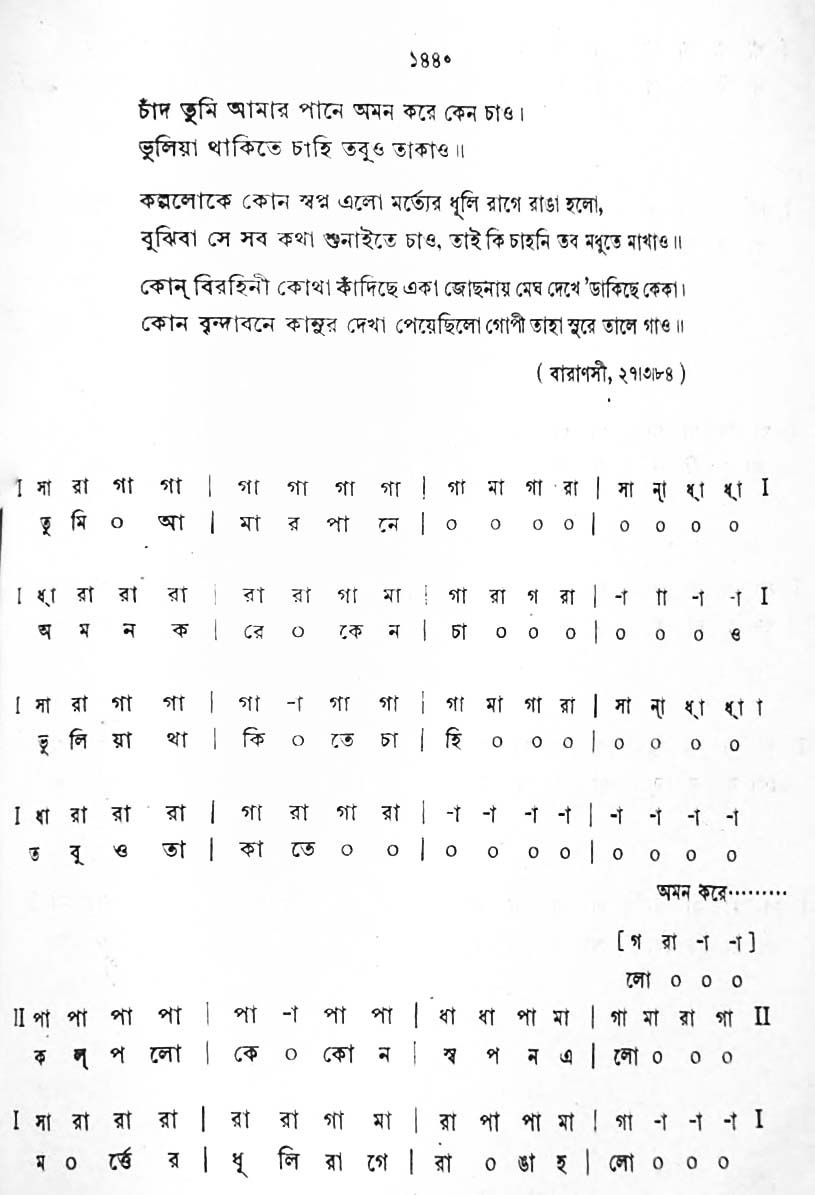 ১৪৪০
চাঁদ তুমি আমার পানে অমন করে কেন চাও।
ভুলিয়া থাকিতে চাহি তবুও তাকাও॥
কল্পলোকে কোন স্বপ্ন এলো মর্ত্যের ধূলি রাগে রাঙা হলো,
বুঝিবা সে সব কথা শুনাইতে চাও, তাই কি চাহনি তব মধুতে মাখাও॥
কোন্ বিরহিনী কোথা কাঁদিছে একা জোছনায় মেঘ দেখে 'ডাকিছে কেকা।
কোন বৃন্দাবনে কানুর দেখা পেয়েছিলো গোপী তাহা সুরে তালে গাও॥
( বারাণসী, ২৭।৩।৮৪ )
I সা রা গা গা | গা গা গা গা | গা মা গা রা | সা ন্া ধ্া ধ্া I
তু মি ০ আ | মা র পা নে | ০ ০ ০ ০ | ০ ০ ০ ০
I ধ্া রা রা রা | রা রা গা মা | গা রা গ রা | -া াা -া -া I
অ ম ন ক | রে ০ কে ন | চা ০ ০ ০ | ০ ০ ০ ও
I সা রা গা গা | গা -া গা গা | গা মা গা রা | সা ন্া ধ্া ধ্া I
ভু লি য়া থা | কি ০ তে চা | হি ০ ০ ০ | ০ ০ ০ ০
I ধা রা রা রা | গা রা গা রা | -া -া -া -া | -া -া -া -া
ত বু ও তা | কা তে ০ ০ | ০ ০ ০ ০ | ০ ০ ০ ০
অমন করে·········
[ গ রা -া -া ]
লো ০ ০ ০
II পা পা পা পা | পা -া পা পা | ধা ধা পা মা | গা মা রা গা II
ক ল্ প লো | কে ০ কো ন | স্ব প ন এ | লো ০ ০ ০
I সা রা রা রা | রা রা গা মা | রা পা পা মা | গা -া -া -া I
ম ০ র্তে র | ধূ লি রা গে | রা ০ ঙা হ | লো ০ ০ ০